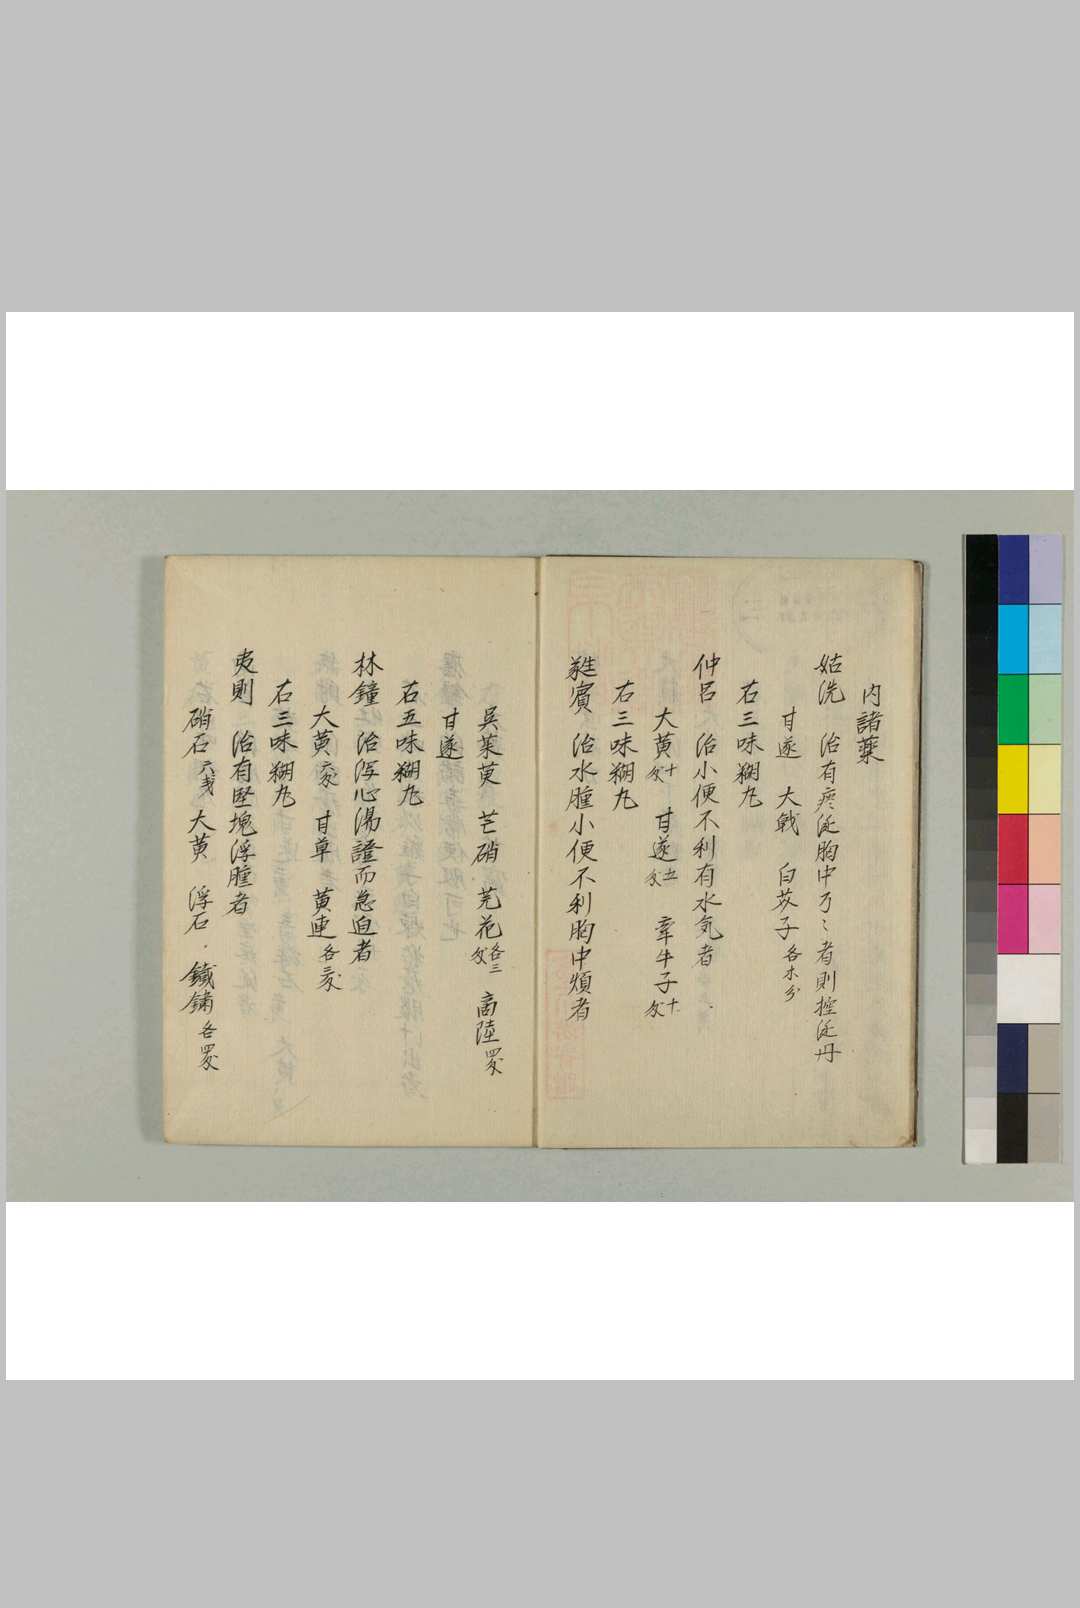 内諸藥
姑洗　治有痰涎胸中丂〻者則控涎丹
甘遂　大戟　白芥子各等分
右三味糊丸
仲呂　治小便不利有水気者
大黄十文　甘遂五文　牽牛子十文
右三味糊丸
蕤賓　治水腫小便不利胸中煩者
呉茱萸　芒硝　芫花各三文　商陸四文
甘遂
右五味糊丸
林鐘　治瀉心湯證而急迫者
大黄六文　甘草　黄連各三文
右三味糊丸
夷則　治有堅塊浮腫者
硝石六戔　大黄　浮石　鐵鏽各四文